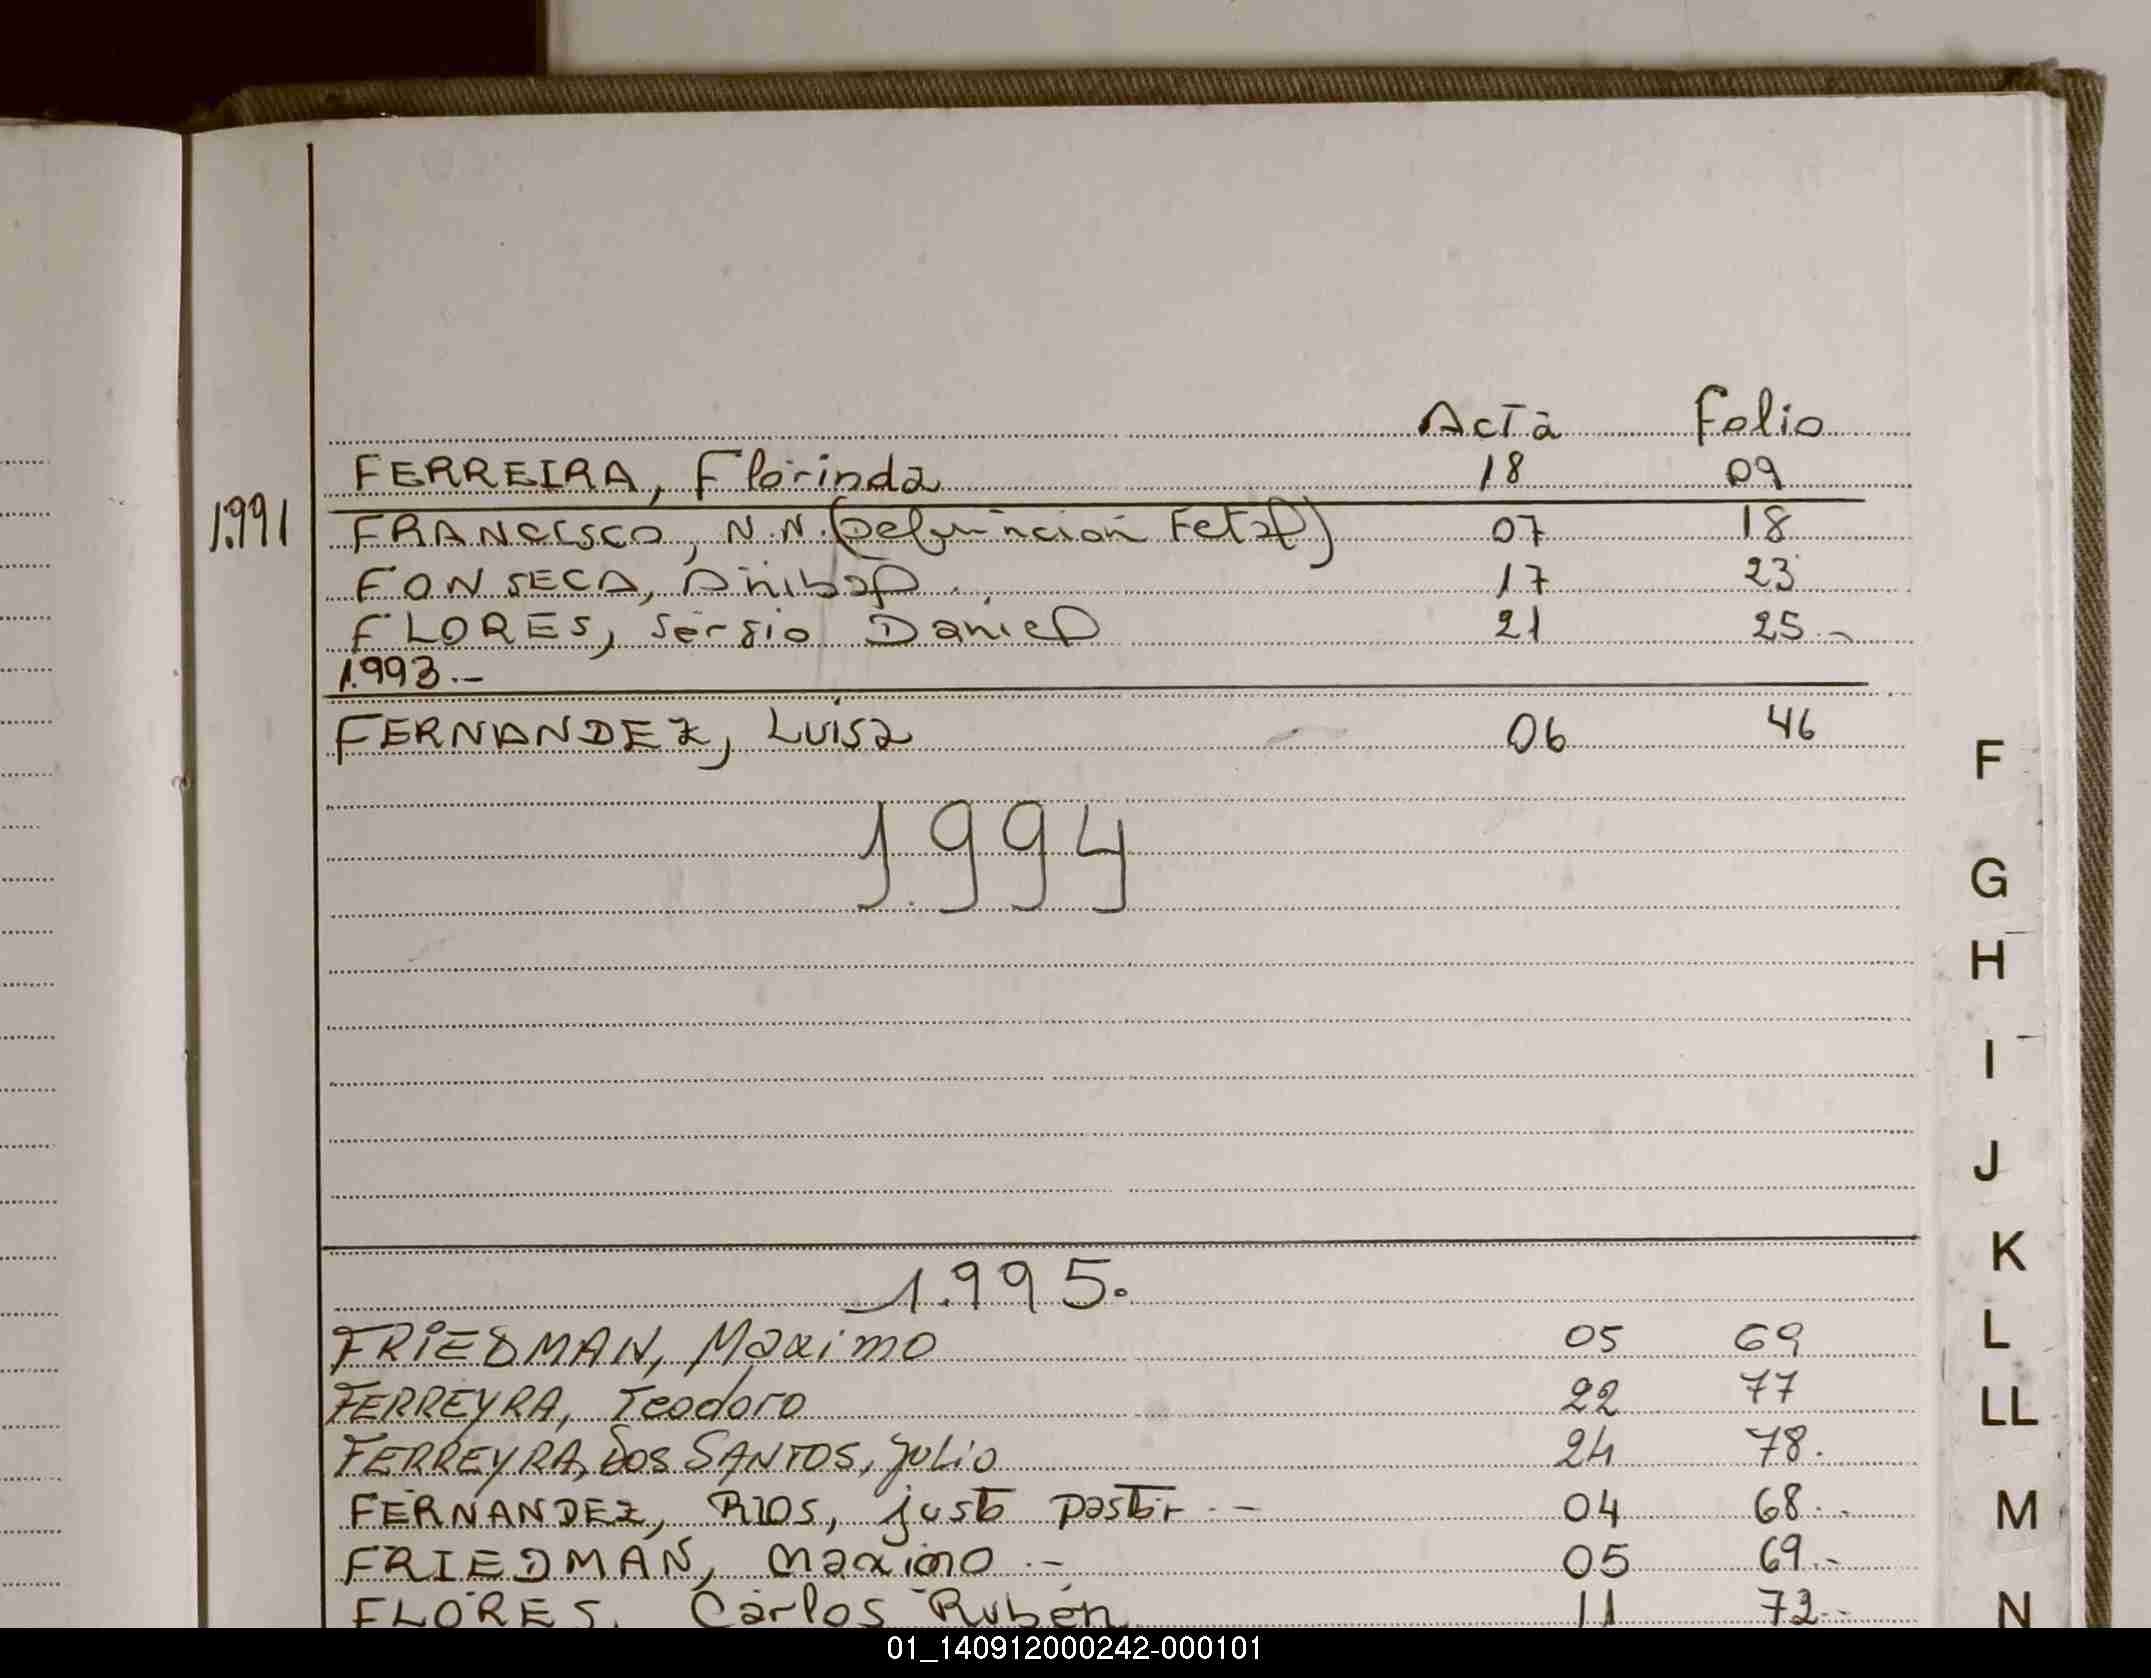 Acta Folio
FERREIRA, Florinda 18 09
1.991 FRANCISCO, N.N. (Defunción Fetal) 07 18
FONSECA, Anibal 17 23
FLORES, Sergio Daniel 21 25.-
1.993.-
FERNANDEZ, Luisa 06 46
1.994
1.995.
FRIEDMAN, Maximo 05 69
FERREYRA, Teodoro 22 77
FERREYRA, DOS SANTOS, Julio 24 78.
FERNANDEZ, RIOS, justo pastor.- 04 68.-
FRIEDMAN, Maximo.- 05 69.-
FLORES, Carlos Rubén 11 72.-
F
G
H
I
J
K
L
LL
M
N
01_140912000242-000101